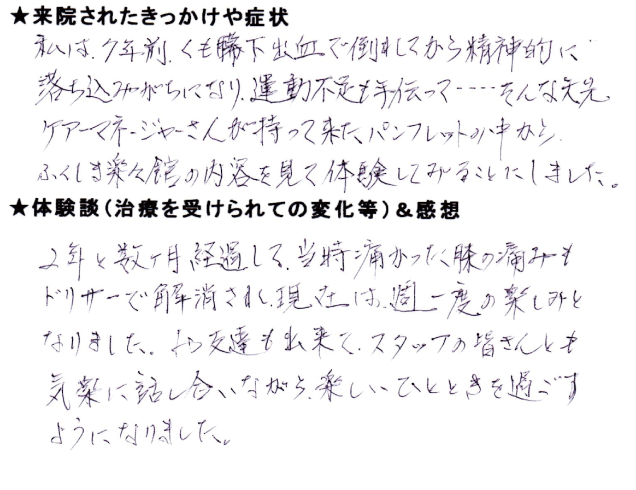 ★来院されたきっかけや症状
私は、7年前、くも膜下出血で倒れしてから精神的に
落ち込みがちになり、運動不足も手伝って‥‥‥そんな矢先、
ケアーマネージャーさんが持って来た、パンフレットの中から、
ふくしま楽々館の内容を見て体験してみることにしました。
★体験談（治療を受けられての変化等）＆感想
2年と数ヶ月経過して、当時痛かった、膝の痛みも
ドリサーで解消され、現在は、週一度の楽しみと
なりました。お友達も出来て、スタッフの皆さんとも
気楽に話し合いながら、楽しいひとときを過ごす
ようになりました。